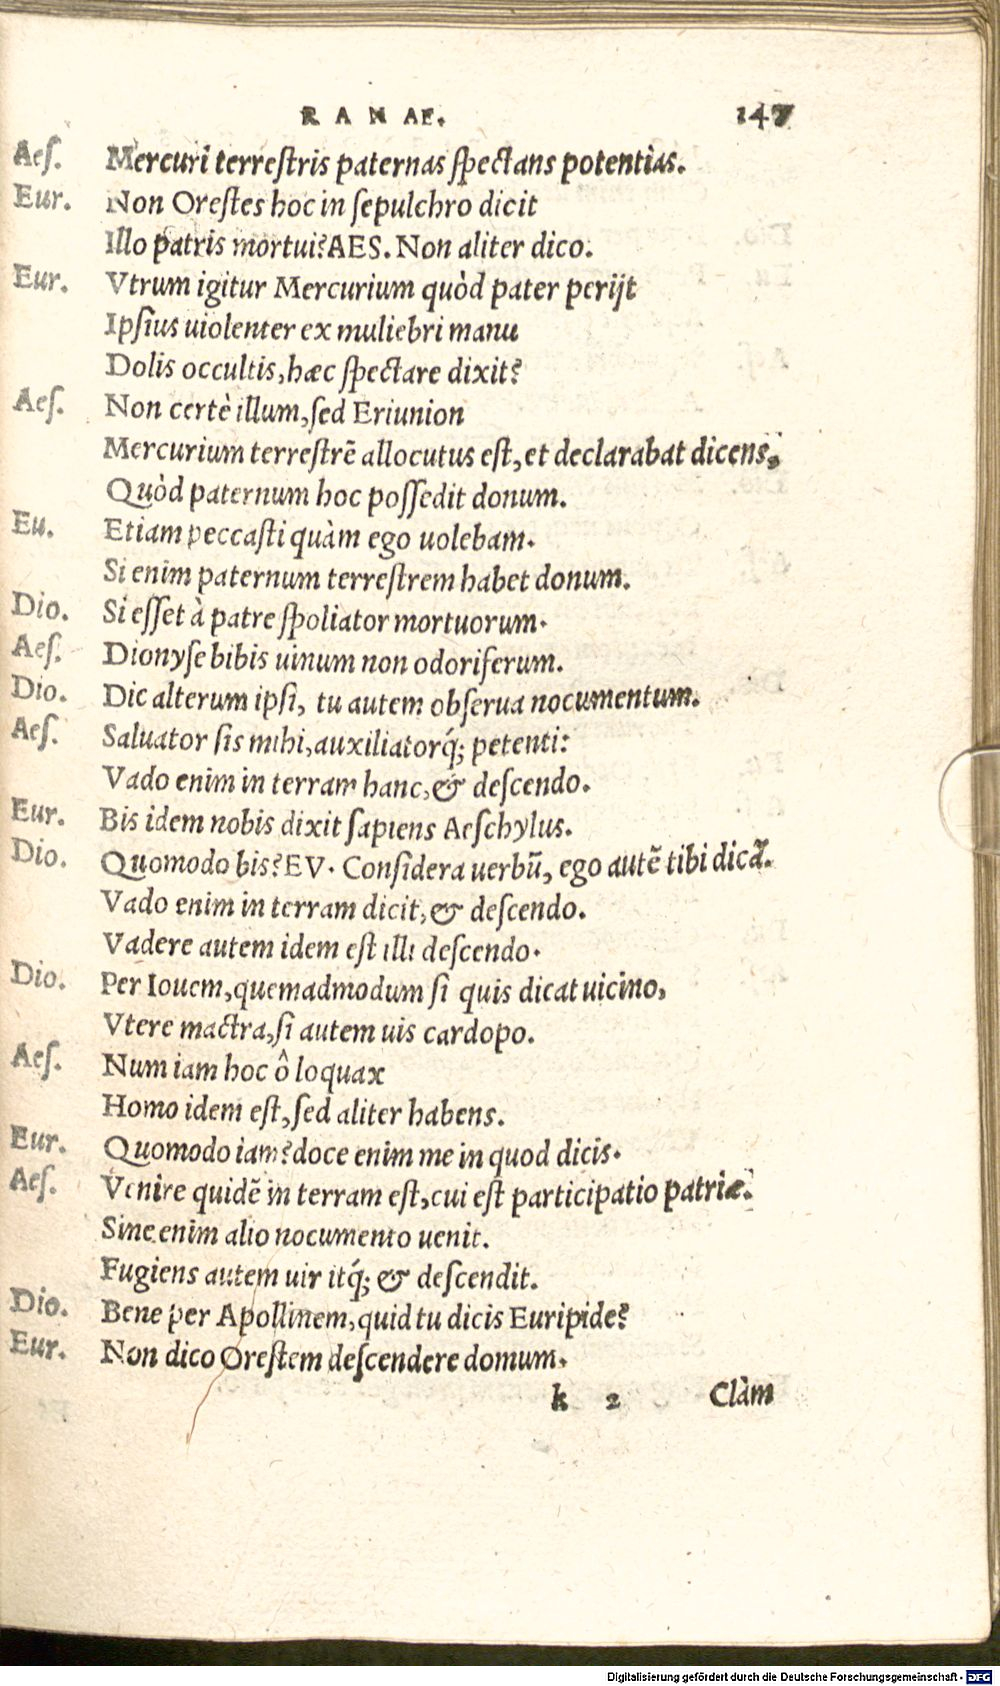 RANAE. 147
Aeſ. Mercuri terreſtris paternas ſpectans potentias.
Eur. Non Oreſtes hoc in ſepulchro dicit
Illo patris mortui? AES. Non aliter dico.
Eur. Vtrum igitur Mercurium quòd pater perijt
Ipſius uiolenter ex muliebri manu
Dolis occultis, hæc ſpectare dixit?
Aeſ. Non certè illum, ſed Eriunion
Mercurium terreſtrē allocutus eſt, et declarabat dicens,
Quòd paternum hoc poſſedit donum.
Eu. Etiam peccaſti quàm ego uolebam.
Si enim paternum terreſtrem habet donum.
Dio. Si eſſet à patre ſpoliator mortuorum.
Aeſ. Dionyſe bibis uinum non odoriferum.
Dio. Dic alterum ipſi, tu autem obſerua nocumentum.
Aeſ. Saluator ſis mihi, auxiliatorq́; petenti:
Vado enim in terram hanc, & deſcendo.
Eur. Bis idem nobis dixit ſapiens Aeſchylus.
Dio. Quomodo bis? EV. Conſidera uerbū, ego autē tibi dicā.
Vado enim in terram dicit, & deſcendo.
Vadere autem idem eſt illi deſcendo.
Dio. Per Iouem, quemadmodum ſi quis dicat uicino,
Vtere mactra, ſi autem uis cardopo.
Aeſ. Num iam hoc ô loquax
Homo idem eſt, ſed aliter habens.
Eur. Quomodo iam? doce enim me in quod dicis.
Aeſ. Venire quidē in terram eſt, cui eſt participatio patriæ.
Sine enim alio nocumento uenit.
Fugiens autem uir itq́; & deſcendit.
Dio. Bene per Apollinem, quid tu dicis Euripide?
Eur. Non dico Oreſtem deſcendere domum.
k 2 Clàm
Digitalisierung gefördert durch die Deutsche Forschungsgemeinschaft - DFG